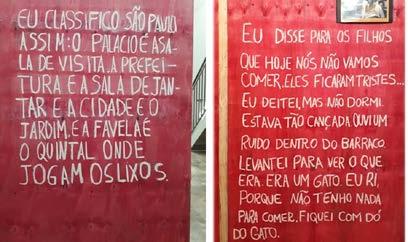 EU CLASSIFICO SÃO PAULO
ASSIM: O PALACIO É A SA-
LA DE VISITA. A PREFEI-
TURA E A SALA DE JAN-
TAR E A CIDADE E O
JARDIM. E A FAVELA É
O QUINTAL ONDE
JOGAM OS LIXOS.
EU DISSE PARA OS FILHOS
QUE HOJE NÓS NÃO VAMOS
COMER. ELES FICARAM TRISTES...
EU DEITEI, MAS NÃO DORMI.
ESTAVA TÃO CANÇADA. OUVI UM
RUIDO DENTRO DO BARRACO.
LEVANTEI PARA VER O QUE
ERA. ERA UM GATO. EU RI,
PORQUE NÃO TENHO NADA
PARA COMER. FIQUEI COM DÓ
DO GATO.